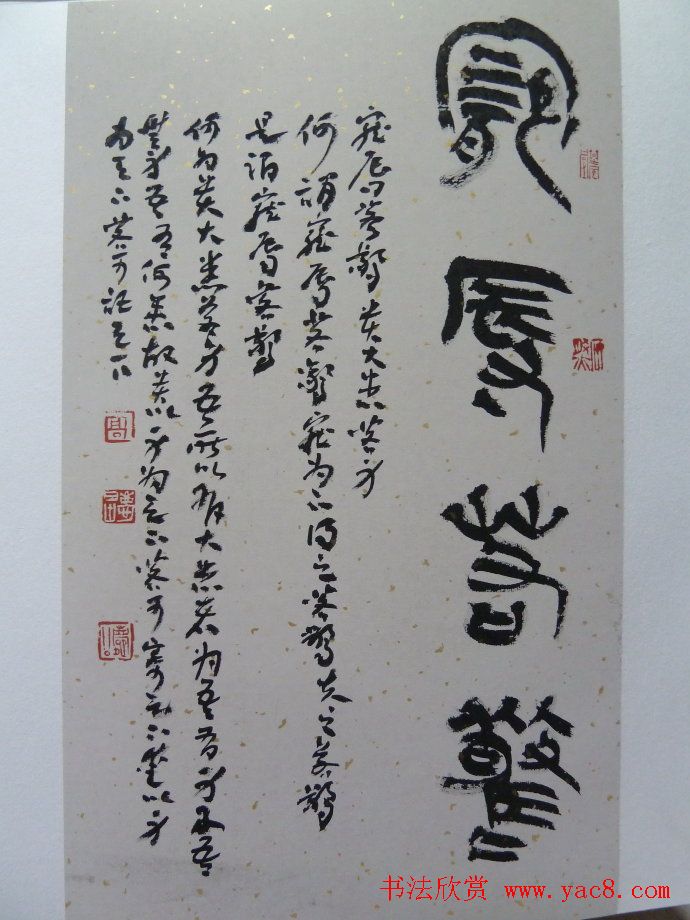 寵辱若驚
寵辱若驚貴大患若身
何謂寵辱若驚寵为下得之若驚失之若驚
是谓寵辱若驚
何为貴大患若身吾所以有大患者为吾有身及吾
無身吾有何患故貴以身为天下若可寄天下愛以身
为天下若可託天下
书法欣赏 www.yac8.com